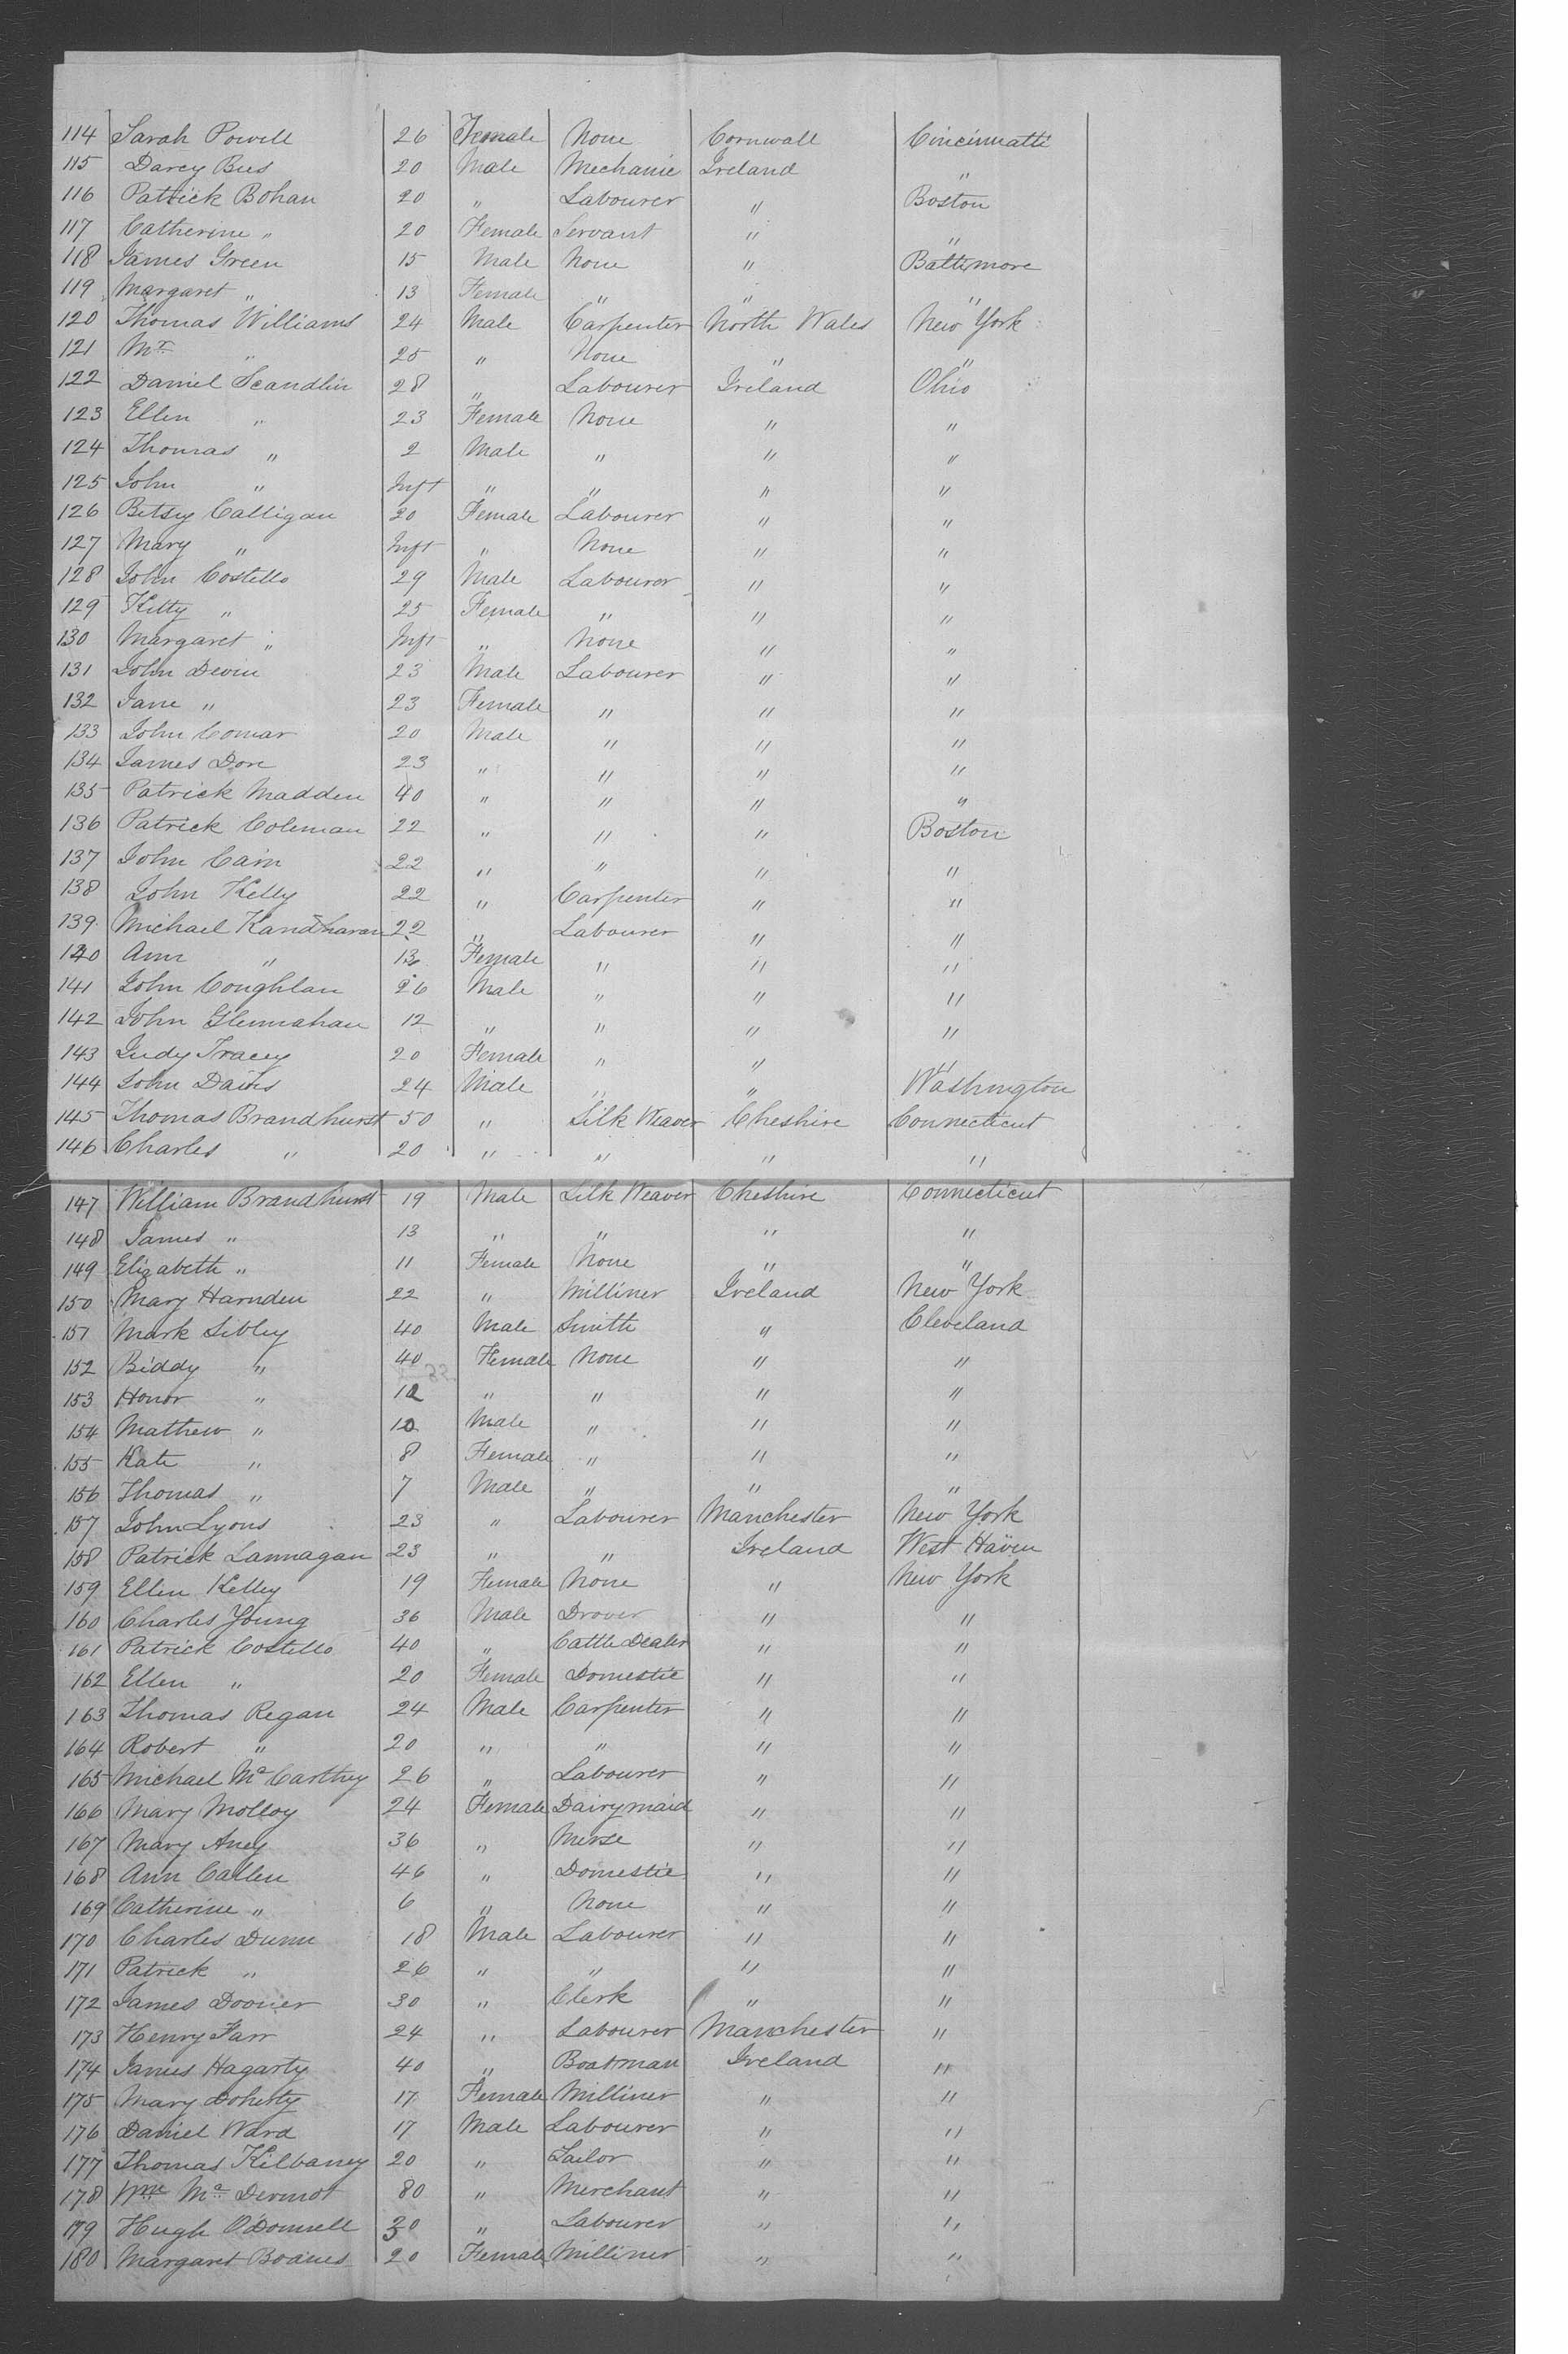 114 Sarah Powell 26 Female None Cornwall Cincinnatti
115 Darcy Bus 20 Male Mechanic Ireland "
116 Patrick Bohan 20 " Labourer " Boston
117 Catherine " 20 Female Servant " "
118 James Green 15 Male None " Baltimore
119 Margaret " 13 Female " " "
120 Thomas Williams 24 Male Carpenter North Wales New York
121 Mr " 25 " None " "
122 Daniel Scandlin 28 " Labourer Ireland Ohio
123 Ellen " 23 Female None " "
124 Thomas " 2 Male " " "
125 John " Inft " " " "
126 Betsy Calligan 20 Female Labourer " "
127 Mary " Inft " None " "
128 John Costello 29 Male Labourer " "
129 Kitty " 25 Female " " "
130 Margaret " Inft " None " "
131 John Devin 23 Male Labourer " "
132 Jane " 23 Female " " "
133 John Comar 20 Male " " "
134 James Dore 23 " " " "
135 Patrick Madden 40 " " " "
136 Patrick Coleman 22 " " " Boston
137 John Cain 22 " " " "
138 John Kelly 22 " Carpenter " "
139 Michael 22 " Labourer " "
140 Ann " 13 Female " " "
141 John Coughlan 26 Male " " "
142 John Glennahan 12 " " " "
143 Judy Tracey 20 Female " " "
144 John 24 Male " " Washington
145 Thomas Brandhurst 50 " Silk Weaver Cheshire Connecticut
146 Charles " 20 " " " "
147 William Brandhurst 19 Male Silk Weaver Cheshire Connecticut
148 James " 13 " " " "
149 Elizabeth " 11 Female None " "
150 Mary Harnden 22 " Milliner Ireland New York
151 Mark Sibley 40 Male Smith " Cleveland
152 Biddy " 40 Female None " "
153 Honor " 12 " " " "
154 Mathew " 10 Male " " "
155 Kate " 8 Female " " "
156 Thomas " 7 Male " " "
157 John Lyons 23 " Labourer Manchester New York
158 Patrick Lannagan 23 " " Ireland West Haven
159 Ellen Kelley 19 Female None " New York
160 Charles Young 36 Male Drover " "
161 Patrick Costello 40 " Cattle Dealer " "
162 Ellen " 20 Female Domestic " "
163 Thomas Regan 24 Male Carpenter " "
164 Robert " 20 " " " "
165 Michael Mc Carthy 26 " Labourer " "
166 Mary Molloy 24 Female Dairymaid " "
167 Mary Aney 36 " Nurse " "
168 Ann Callen 46 " Domestic " "
169 Catherine " 6 " None " "
170 Charles Dunn 18 Male Labourer " "
171 Patrick " 26 " " " "
172 James Dooner 30 " Clerk " "
173 Henry Farr 24 " Labourer Manchester "
174 James Hagarty 40 " Boatman Ireland "
175 Mary Doherty 17 Female Milliner " "
176 Daniel Ward 17 Male Labourer " "
177 Thomas Kilbaney 20 " Tailor " "
178 Wm Mc Dermot 80 " Merchant " "
179 Hugh O'Donnell 30 " Labourer " "
180 Margaret Boanes 20 Female Milliner " "